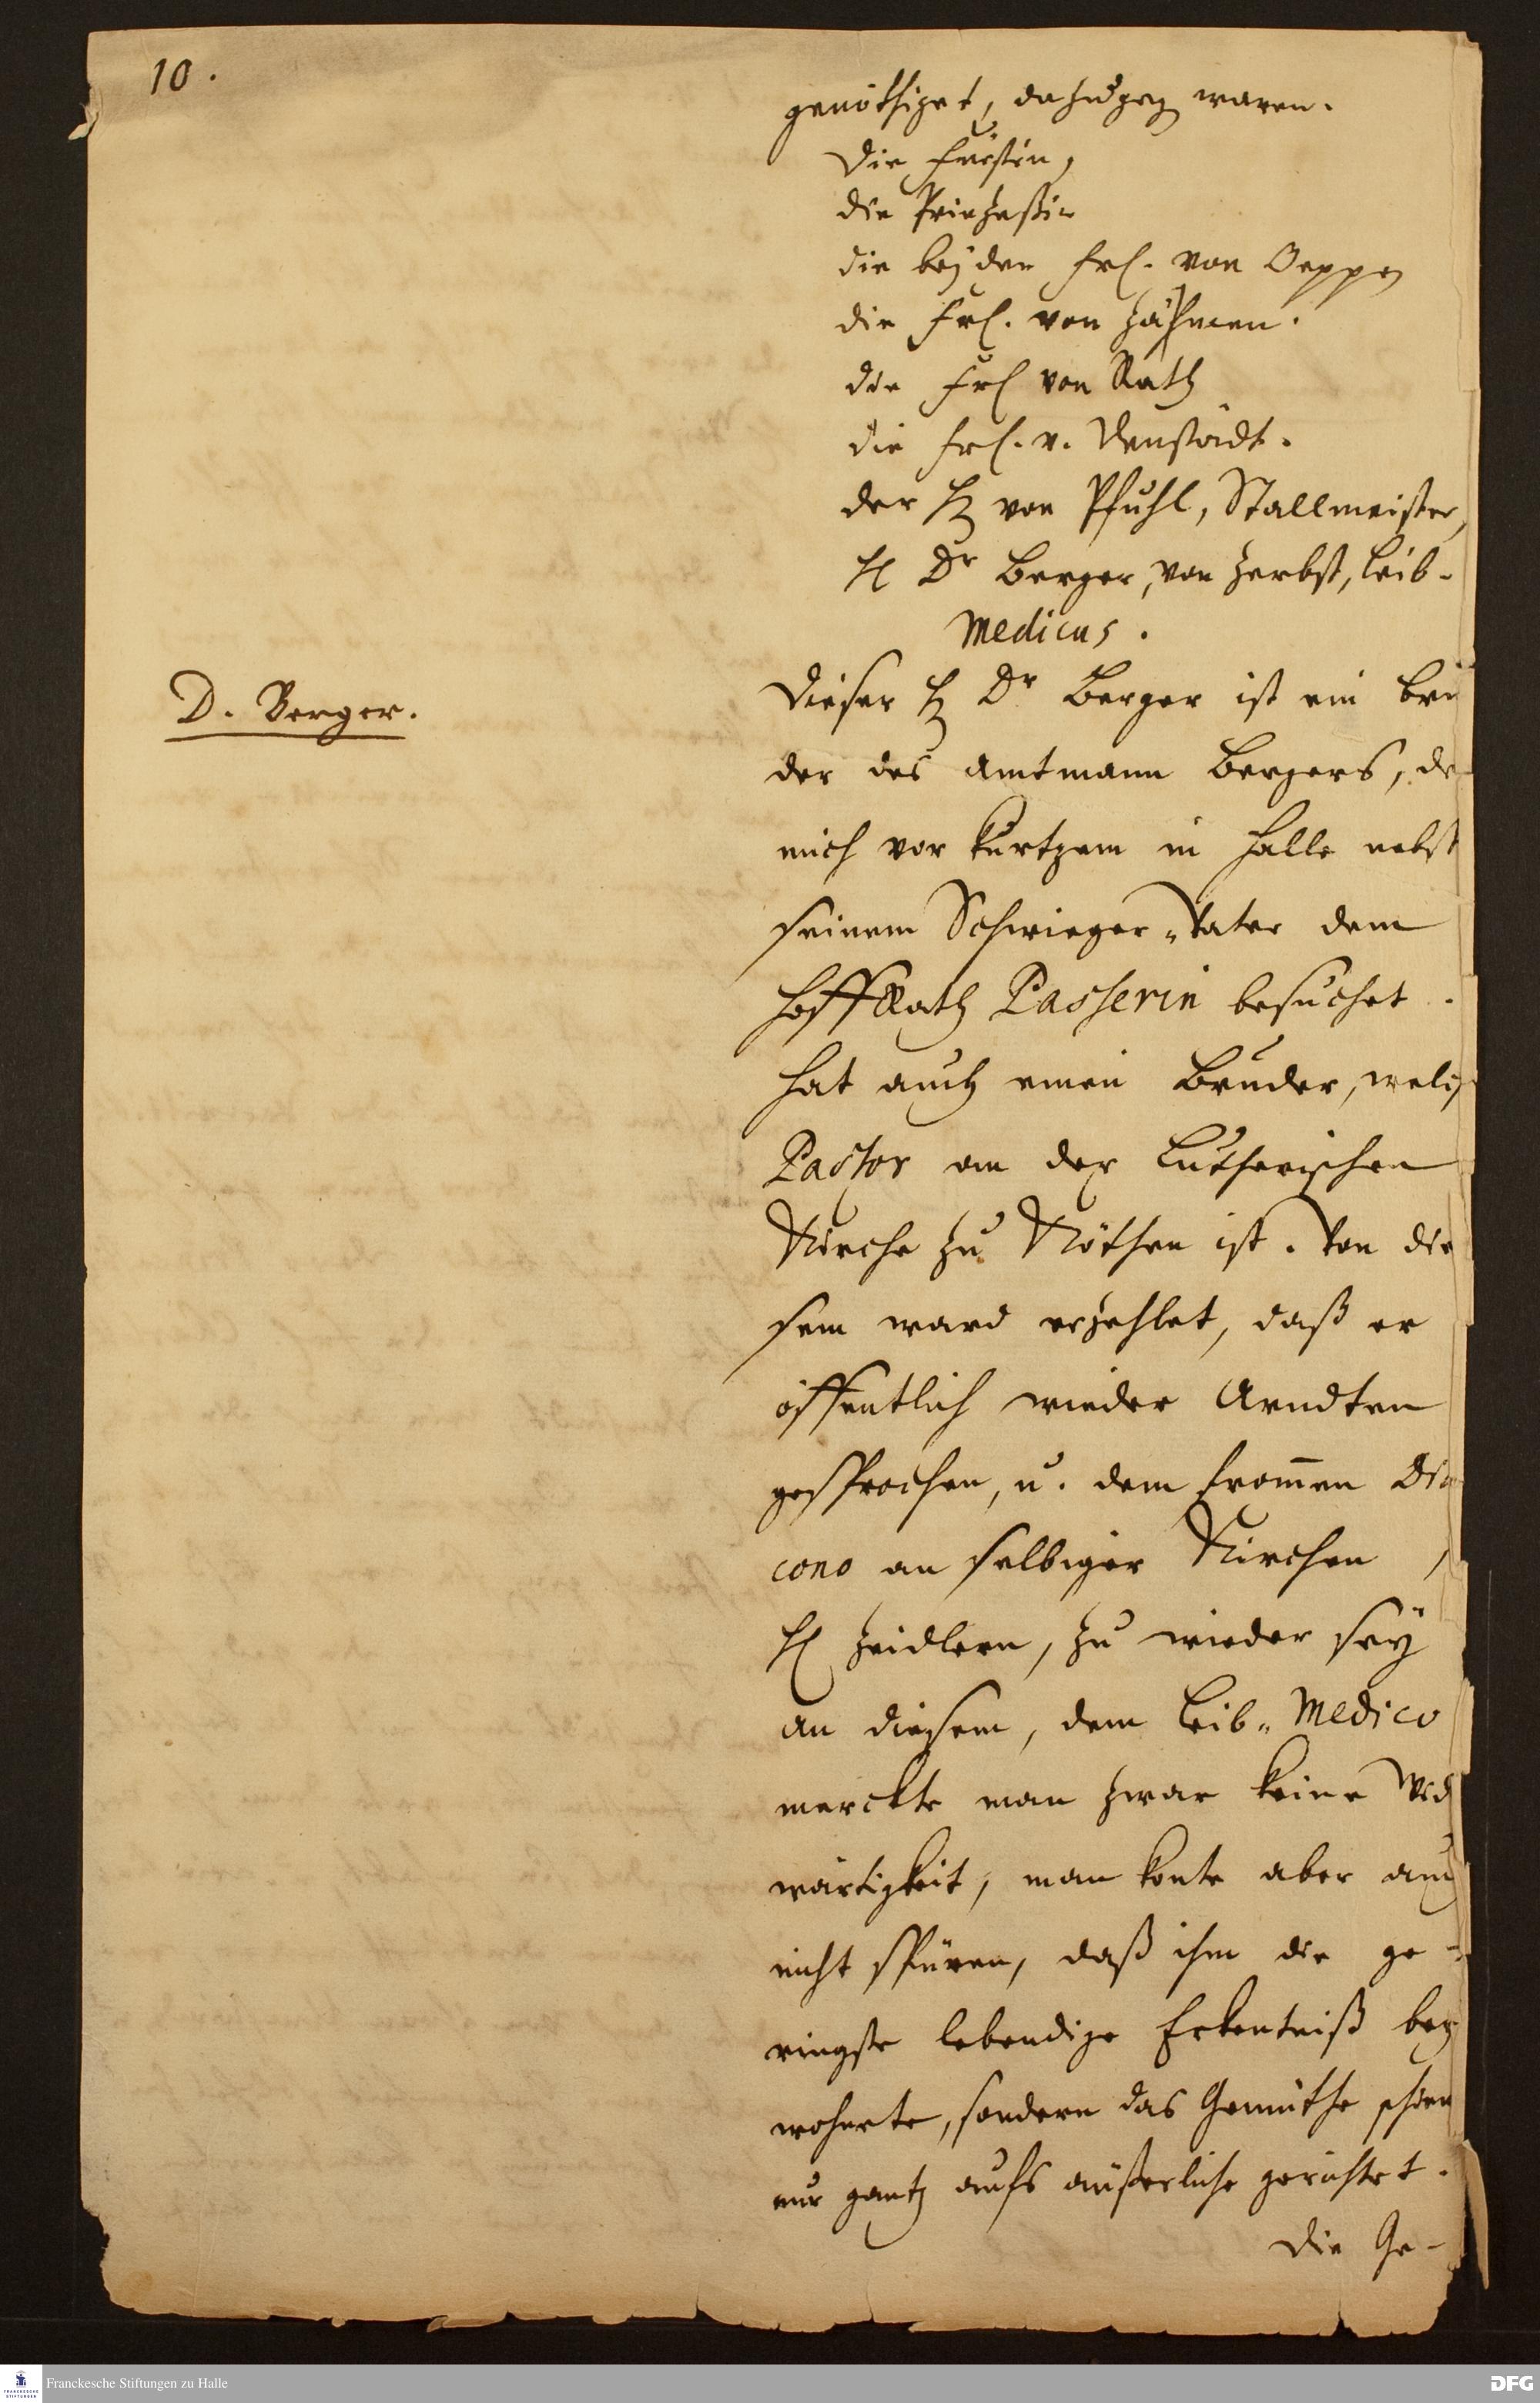 10.
genöthiget, dazugeg waren.
Die Fürstin,
die Printzeßin
die beyden Frl. von Oeppen
die Frl. von Zähmen.
die Frl von Rath
die Frl. v. Neustädt.
der H. von Pfuhl, Stallmeister,
H Dr Berger, von Zerbst, Leib-
Medicus.
D. Berger.
Dieser H. Dr Berger ist ein Bru
der des Amtmann Bergers, de
mich vor kurtzem in Halle nebst
seinem Schwieger-Vater dem
HoffRath Passerin besuchet.
hat auch einen Bruder, welch
Pastor an der Lutherischen
Kirche zu Köthen ist. Von die
sem ward erzehlet, daß er
öffentlich wieder Arndten
gesprochen, u. dem from̄en Dia
cono an selbiger Kirchen,
H Zeidlern, zu wieder sey
an diesem, dem Leib-Medico
merckte man zwar keine Wid
wärtigkeit, man konte aber auch
nicht spüren, daß ihm die ge-
ringste lebendige Erkentniß bey
wohnte, sondern das Gemüthe schien
nur gantz aufs äußerliche gerichtet.
Die Ge-
Franckesche Stiftungen zu Halle
DFG